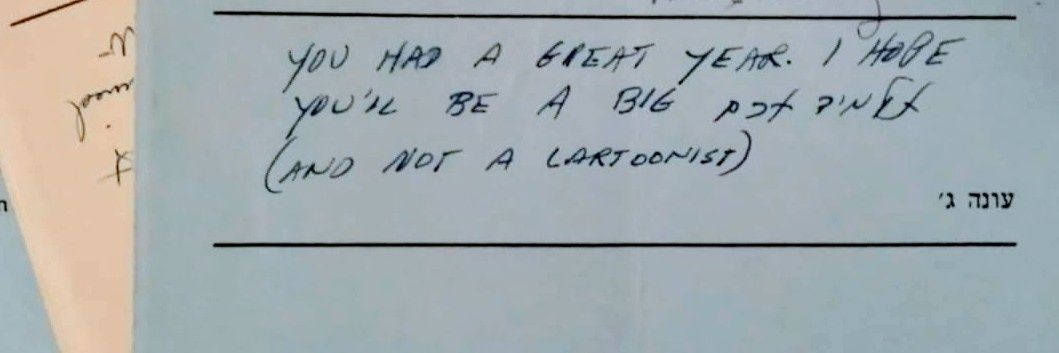 YOU HAD A GREAT YEAR. I HOPE
YOU'LL BE A BIG תלמיד חכם
(AND NOT A CARTOONIST)
עונה ג'